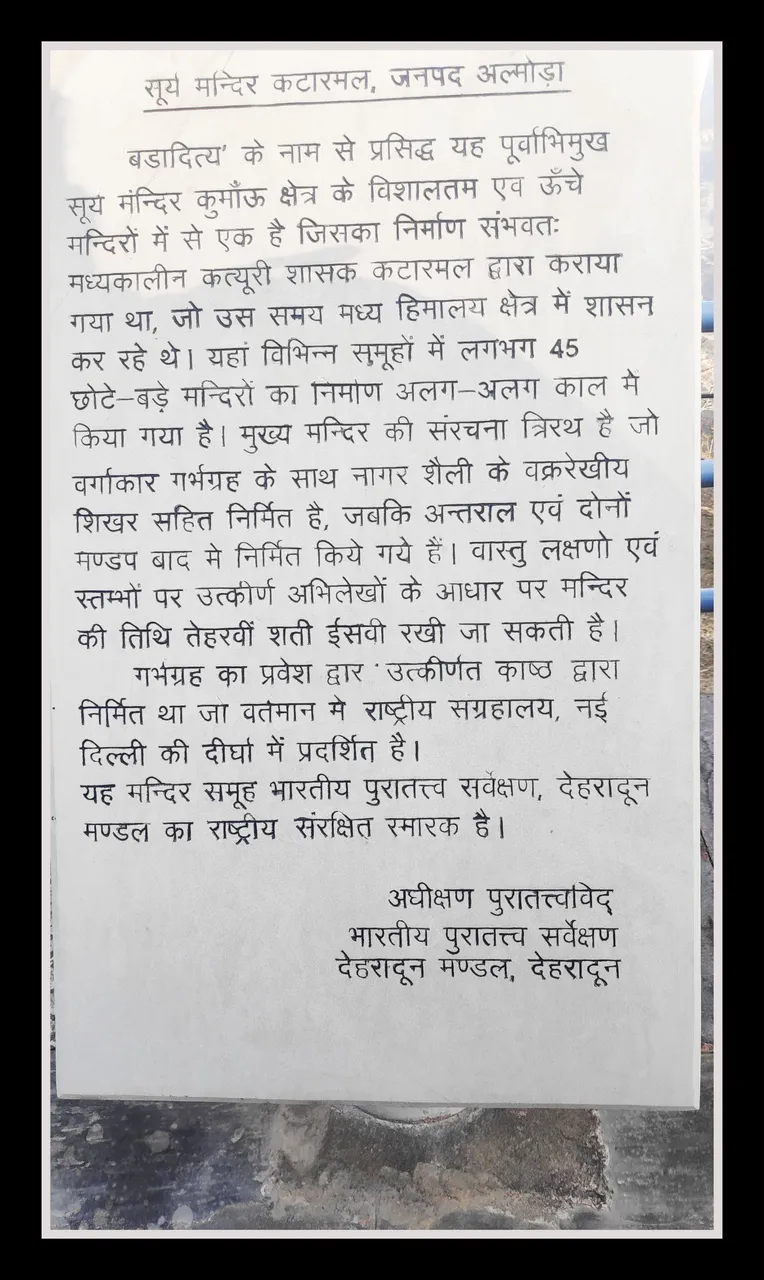 सूर्य मन्दिर कटारमल, जनपद अल्मोड़ा
बडादित्य' के नाम से प्रसिद्ध यह पूर्वाभिमुख
सूर्य मंन्दिर कुमाँऊ क्षेत्र के विशालतम एव ऊँचे
मन्दिरों में से एक है जिसका निर्माण संभवतः
मध्यकालीन कत्यूरी शासक कटारमल द्वारा कराया
गया था, जो उस समय मध्य हिमालय क्षेत्र में शासन
कर रहे थे। यहां विभिन्न सुमूहों में लगभग 45
छोटे–बड़े मन्दिरों का निर्माण अलग–अलग काल मे
किया गया है। मुख्य मन्दिर की संरचना त्रिरथ है जो
वर्गाकार गर्भग्रह के साथ नागर शैली के वक्ररेखीय
शिखर सहित निर्मित है, जबकि अन्तराल एवं दोनों
मण्डप बाद मे निर्मित किये गये हैं। वास्तु लक्षणो एवं
स्तम्भों पर उत्कीर्ण अभिलेखों के आधार पर मन्दिर
की तिथि तेहरवीं शती ईसवी रखी जा सकती है।
गर्भग्रह का प्रवेश द्वार उत्कीर्णत काष्ठ द्वारा
निर्मित था जा वर्तमान मे राष्ट्रीय सग्रहालय, नई
दिल्ली की दीर्घा में प्रदर्शित है।
यह मन्दिर समूह भारतीय पुरातत्त्व सर्वेक्षण, देहरादून
मण्डल का राष्ट्रीय संरक्षित स्मारक है।
अधीक्षण पुरातत्त्वविद्
भारतीय पुरातत्त्व सर्वेक्षण
देहरादून मण्डल, देहरादून